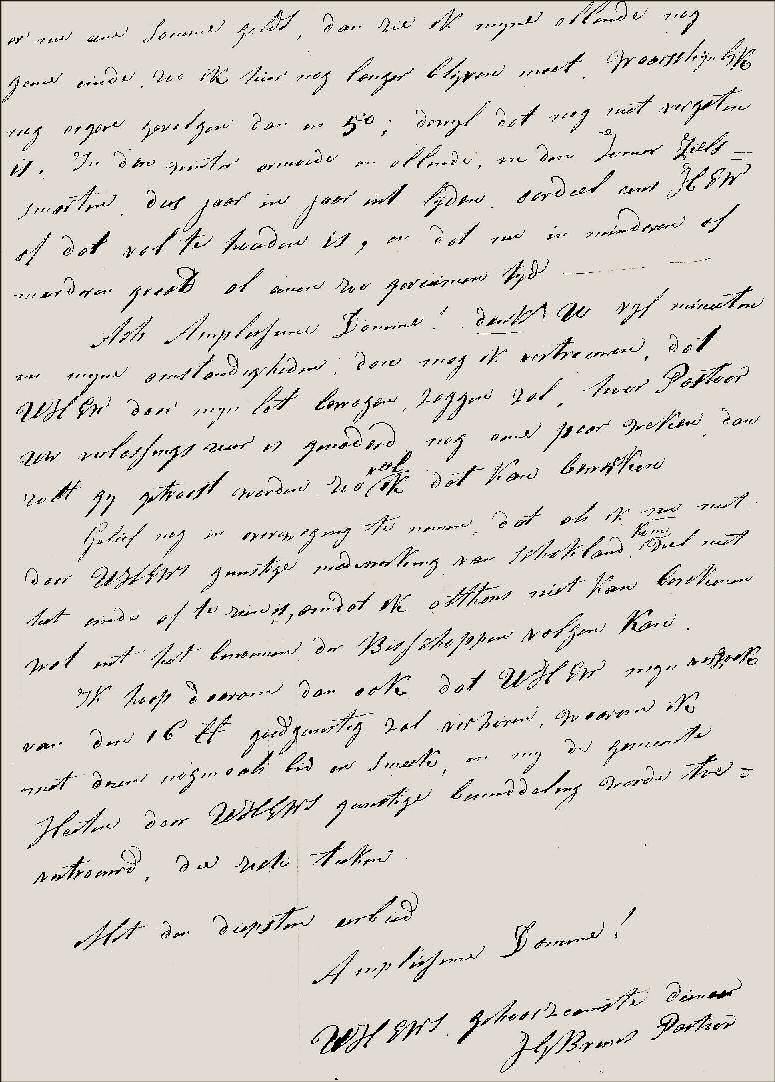 er me eene somme geldt, dan zie ik mijne ellende nog
geene einde, zoo ik hier nog langer blyven moet. Waarschijnlijk
nog ergere gevolgen dan in 50; dewyl dat nog niet vergeten
is. In den winter armoede en ellende, in den zomer ziels=
smarten, dus jaar in jaar uit lyden, oordeel eens HEW
of dat vol te houden is, en dat me in minderen of
meerderen graad al eenen zoo geruimen tyd
Ach Amplissime Domine! denkt U vyf minuten
in myne omstandigheden, dan mag ik vertrouwen, dat
UHEW door myn lot bewogen, zeggen zal, heer Pastoor
uw verlossings uur is genaderd, nog eene paar weken, dan
zult gy getroost worden zoo veel ik dat kan bewerken
Gelief nog in overweging te nemen, dat als ik nu niet
door UHEWs gunstige medewerking van Schokland kom, ziet niet
het einde af te zien is, omdat ik althans niet kan berekenen
wat uit het benoemen der Bisschoppen volgen kan.
Ik hoop daarom dan ook dat UHEW mijn verzoek
van den 16 ll goedgunstig zal verhoren, waarom ik
met dezen nogmaals bid en smeek, en my de gemeente
Heeten door UHEWs gunstige bemiddeling worde toe=
vertrouwd, die zich teeken
Met den diepsten eerbied
Amplissime Domine!
UHEWs gehoorzaamste dienaar
JG Brons Pastoor